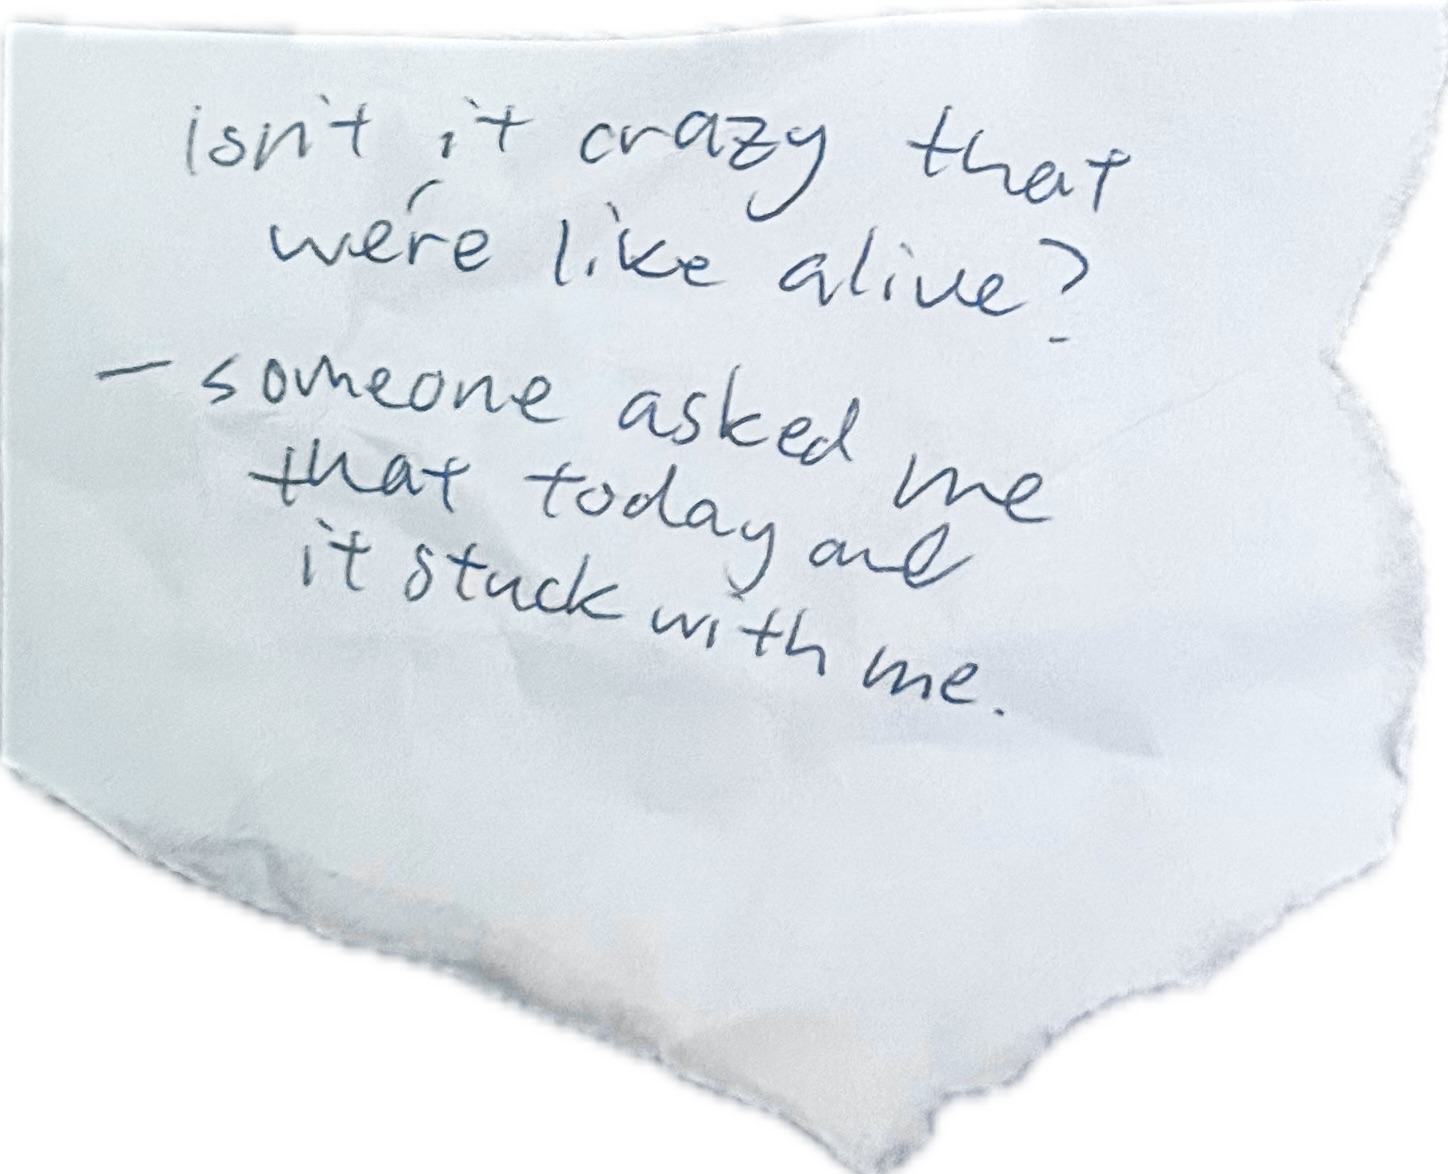 isn't it crazy that
we're like alive?
- someone asked me
that today and
it stuck with me.